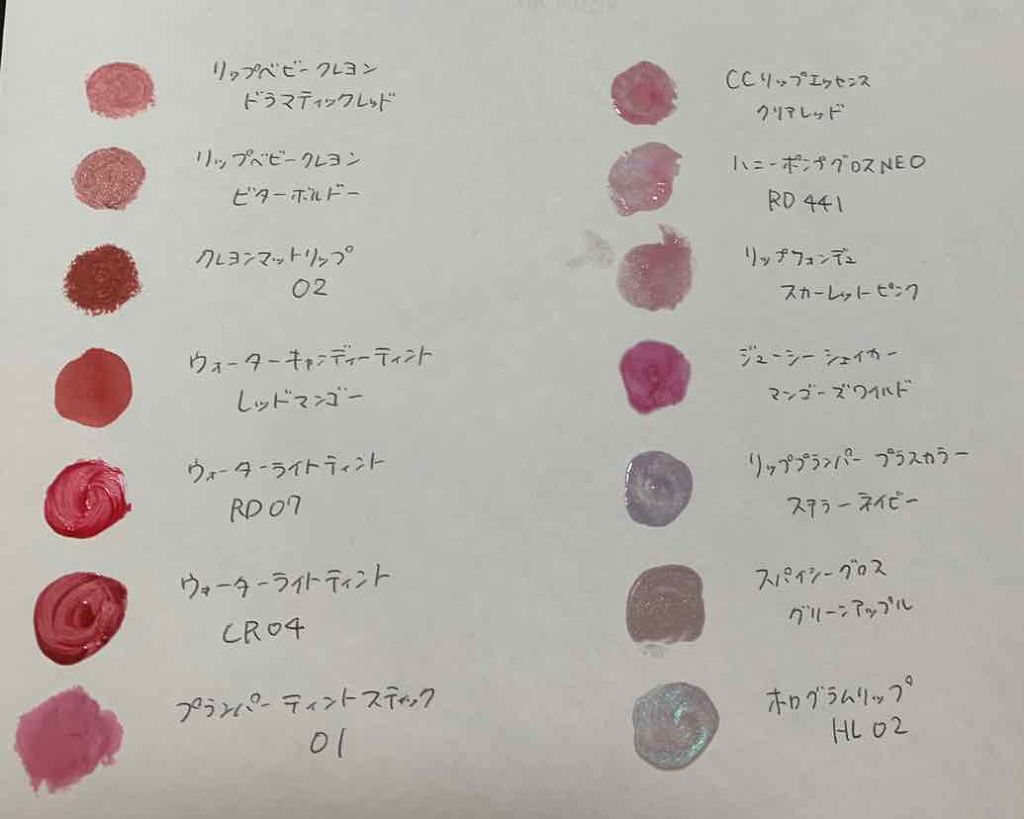 リップベビークレヨン
ドラマティックレッド
リップベビークレヨン
ビターボルドー
クレヨンマットリップ
02
ウォーターキャンディーティント
レッドマンゴー
ウォーターライトティント
RD07
ウォーターライトティント
CR04
プランパーティントスティック
01
CCリップエッセンス
クリアレッド
ハニーポンプグロスNEO
RD441
リップフォンデュ
スカーレットピンク
ジューシーシェイカー
マンゴーズワイルド
リッププランパー プラスカラー
ステラーネイビー
スパイシーグロス
グリーンアップル
ホログラムリップ
HL02